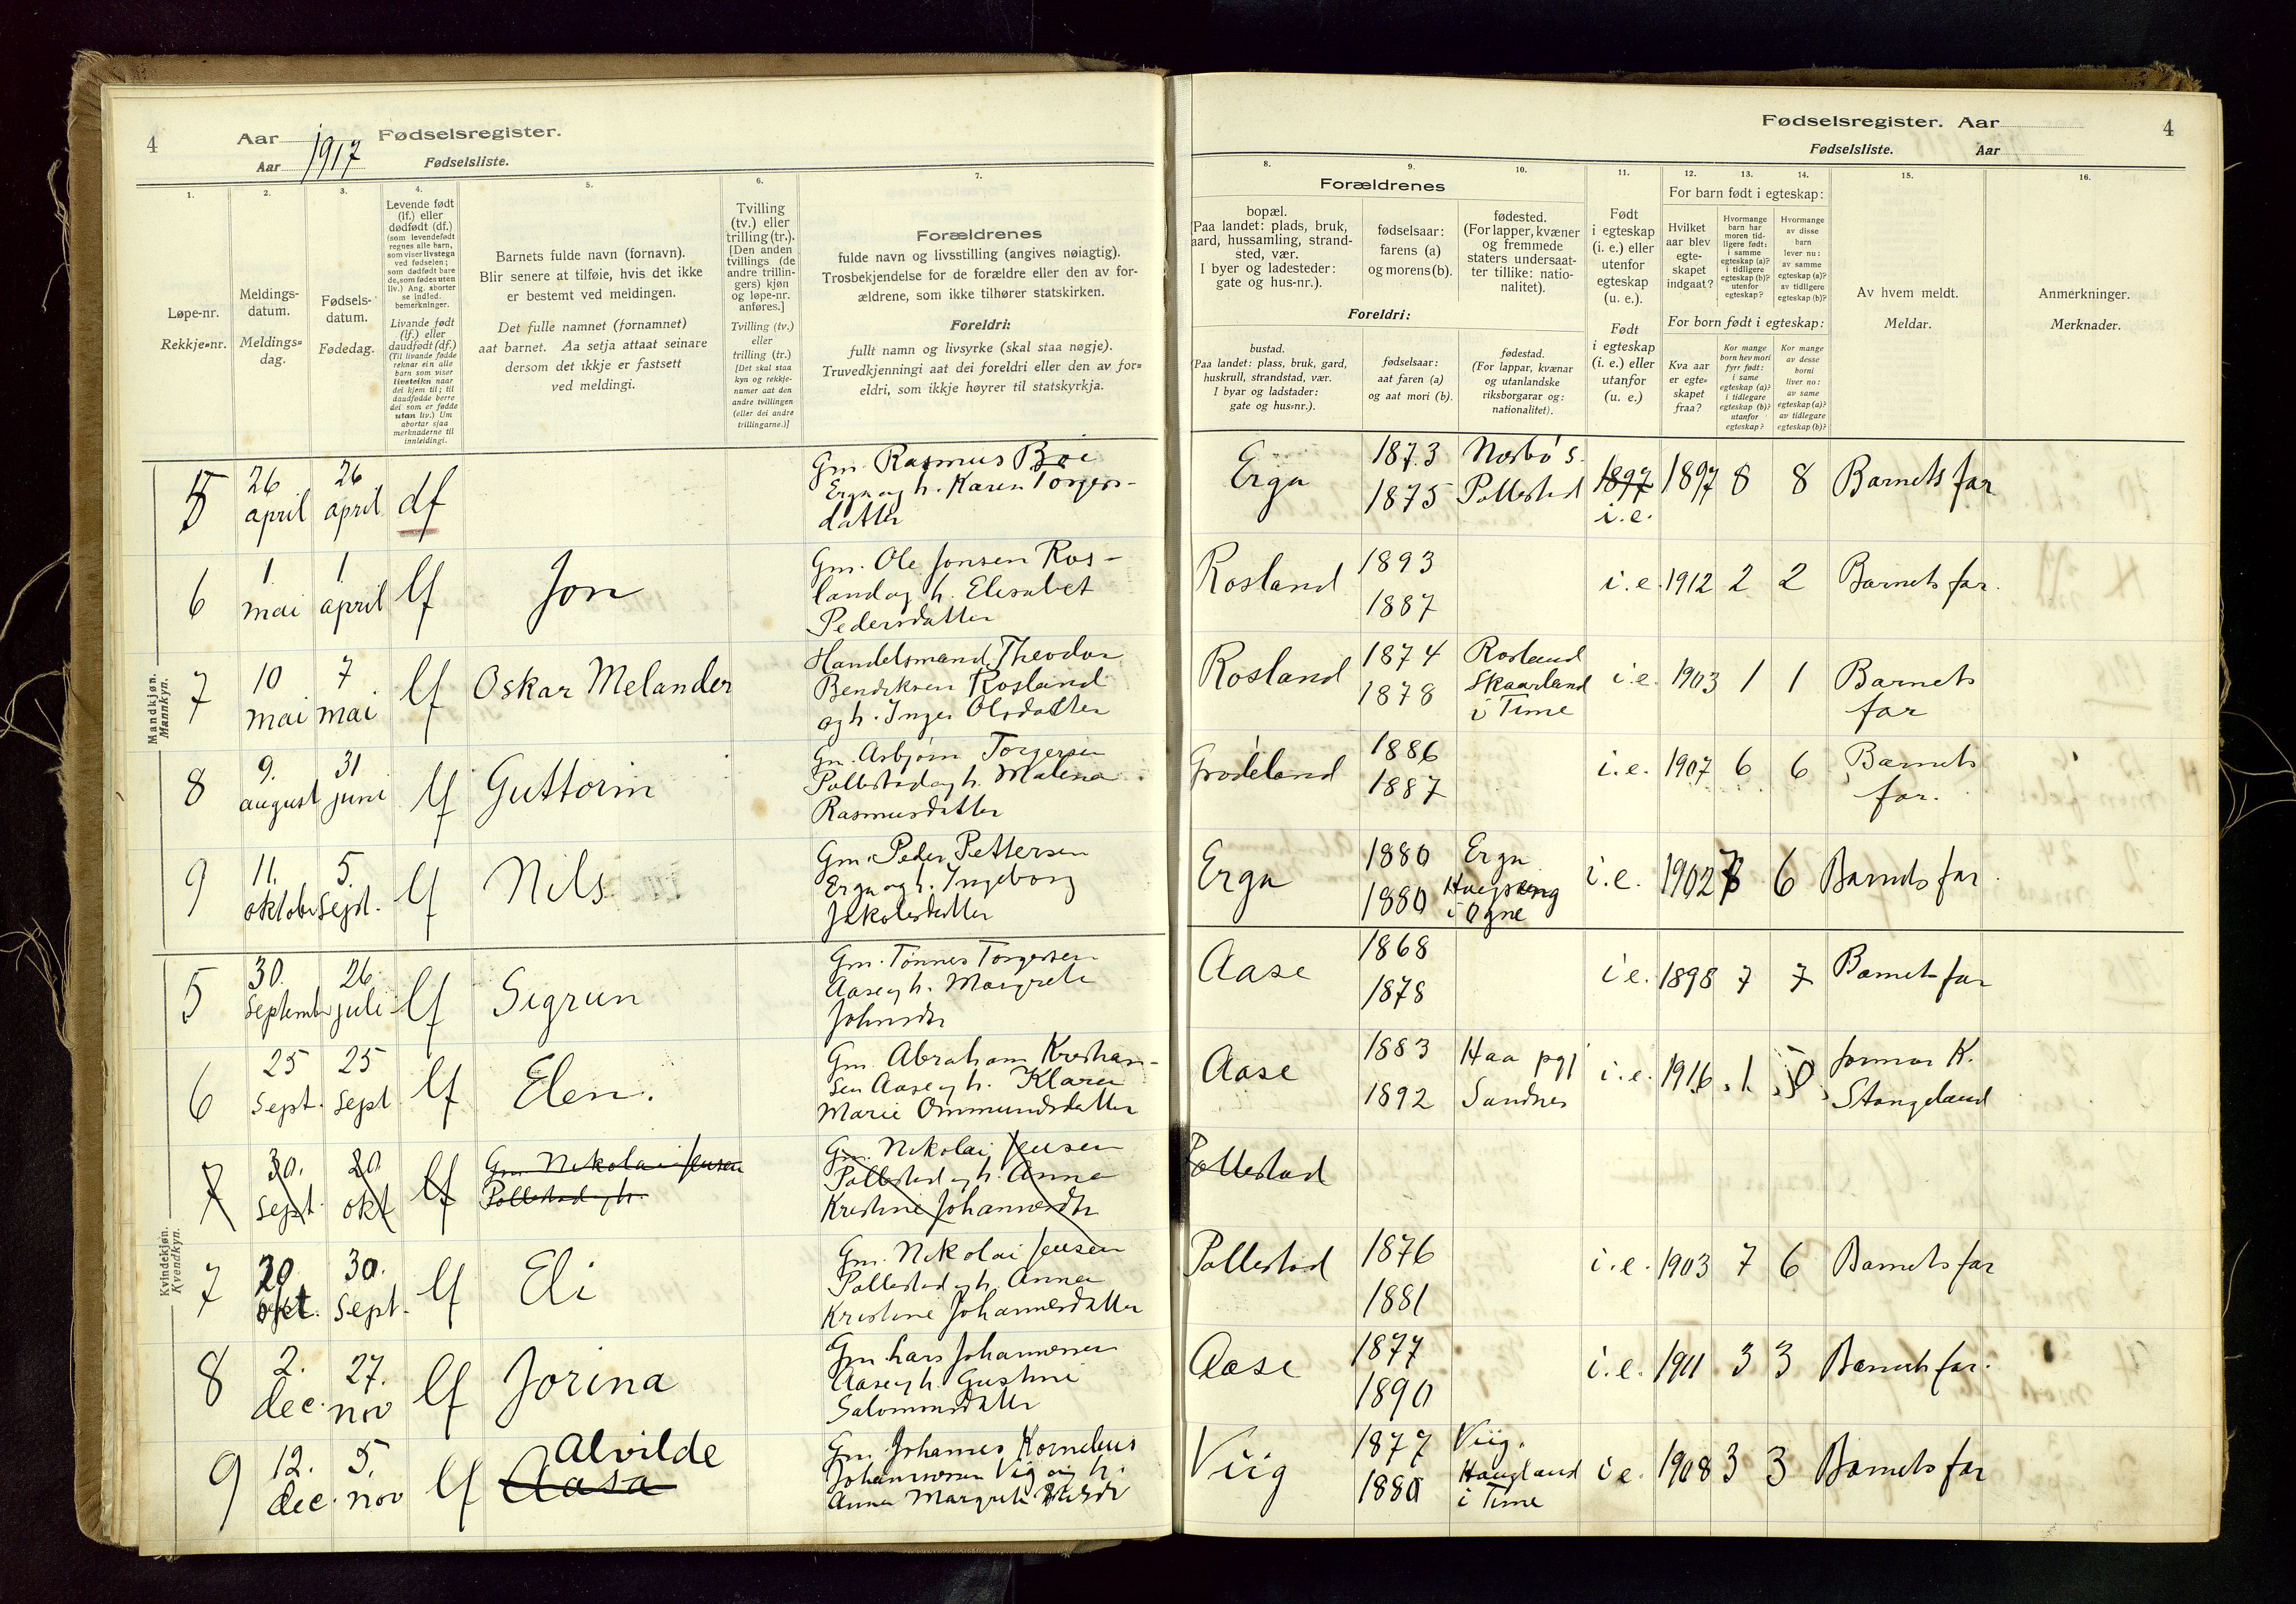 4 Aar 1917 Fødselsregister.
Aar Fødselsliste.
1. 2. 3. 4. 5. 6. 7.
Løpe-nr.
Rekkje-nr.
Meldings-
datum.
Meldings-
dag.
Fødsels-
datum.
Fødedag.
Levende født
(lf.) eller
dødfødt (df.)
(som levendefødt
regnes alle barn,
som viser livstegn
ved fødselen;
som dødfødt bare
de, som fødes uten
liv.) Ang. aborter
se indled.
bemerkninger.
Livande født
(lf.) eller
daudfødt (df.)
(Til livande fødde
reknar ein alle
barn som viser
livsteikn naar
dei kjem til; til
daudfødde berre
dei som er fødde
utan liv.) Um
abortar sjaa
merknaderne til
innleidingi.
Barnets fulde navn (fornavn).
Blir senere at tilføie, hvis det ikke
er bestemt ved meldingen.
Det fulle namnet (fornamnet)
aat barnet. Aa setja attaat seinare
dersom det ikkje er fastsett
ved meldingi.
Tvilling
(tv.) eller
trilling (tr.).
[Den anden
tvillings (de
andre trillin-
gers) kjøn
og løpe-nr.
anføres.]
Tvilling (tv.)
eller
trilling (tr.)
[Det skal staa
kyn og rekkje-
numer aat den
andre tvillingen
(eller dei andre
trillingarne.)]
Forældrenes
fulde navn og livsstilling (angives nøiagtig).
Trosbekjendelse for de forældre eller den av for-
ældrene, som ikke tilhører statskirken.
Foreldri:
fullt namn og livsyrke (skal staa nøgje).
Truvedkjenningi aat dei foreldri eller den av for-
eldri, som ikkje høyrer til statskyrkja.
Mandkjøn.
Mannkyn.
5 26 april 26 april df
Gm. Rasmus Bøi
Erga og h. Karen Torgers-
datter
6 1 mai 1 april lf Jon
Gm. Ole Jonsen Ros-
land og h. Elisabet
Pedersdatter
7 10 mai 7 mai lf Oskar Melander
Handelsmand Theodor
Bendiksen Rosland
og h. Inger Olsdatter
8 9. august 31 juni lf Guttorm
Gm. Asbjørn Torgersen
Pollestad og h. Malena
Rasmusdatter
9 11. oktober 5. Sept. lf Nils
Gm. Peder Pettersen
Erga og h. Ingeborg
Jakobsdatter
Kvindekjøn.
Kvendkyn.
5 30. September 26. juli lf Sigrun
Gm. Tønnes Torgersen
Aase og h. Margrete
Johnsdtr
6 25 Sept. 25 Sept lf Elen.
Gm. Abraham Kristian-
sen Aase og h. Klara
Marie Ommundsdatter
7 30. Sept. 20. okt lf Gm. Nikolai Jensen
Pollestad og h.
Gm. Nikolai Jensen
Pollestad og h. Anna
Kristine Johannesdtr
7 20 okt. 30. Sept. lf Eli
Gm. Nikolai Jensen
Pollestad og h. Anna
Kristine Johannesdatter
8 2. dec. 27. nov lf Jorina
Gm. Lars Johannesen
Aase og h. Gustine
Salomonsdatter
9 12. dec. 5. nov lf Alvilde
Aasa
Gm. Johannes Kornelius
Johannesen Viig og h.
Anna Margrete
Fødselsregister. Aar 4
Fødselsliste. Aar
8. 9. 10. 11. 12. 13. 14. 15. 16.
Forældrenes
bopæl.
(Paa landet: plads, bruk,
gaard, hussamling, strand-
sted, vær.
I byer og ladesteder:
gate og hus-nr.).
fødselsaar:
farens (a)
og morens (b).
fødested.
(For lapper, kvæner
og fremmede
staters undersaat-
ter tillike: natio-
nalitet).
Foreldri:
bustad.
(Paa landet: plass, bruk, gard,
huskrull, strandstad, vær.
I byar og ladstader:
gate og hus-nr.).
fødselsaar:
aat faren (a)
og aat mori (b).
fødestad.
(For lappar, kvænar
og utanlandske
riksborgarar og:
nationalitet).
Født
i egteskap
(i. e.) eller
utenfor
egteskap
(u. e.).
Født
i egteskap
(i. e.) eller
utanfor
(u. e.)
For barn født i egteskap:
Hvilket
aar blev
egte-
skapet
indgaat?
Hvormange
barn har
moren tid-
ligere født:
i samme
egteskap (a)?
i tidligere
egteskap (b)?
utenfor
egteskap?
Hvormange
av disse
barn
lever nu:
av samme
egteskap (a)?
av tidligere
egteskap (b)?
For born født i egteskap:
Kva aar
er egte-
skapet
fraa?
Kor mange
born hev mori
fyrr født:
i same
egteskap (a)?
i tidlegare
egteskap (b)?
utanfor
egteskap?
Kor mange
av desse
borni
liver no:
av same
egteskap (a)?
av tidlegare
egteskap (b)?
Av hvem meldt.
Meldar.
Anmerkninger.
Merknader.
Erga 1873 Nesbø s.
1875 Pollestad 1897 i.e. 1897 8 8 Barnets far
Rosland 1893
1887 i.e. 1912 2 2 Barnets far.
Rosland 1874 Rosland
1878 Skaarland
i Time i.e. 1903 1 1 Barnets
far
Grødeland 1886
1887 i.e. 1907 6 6 Barnets
far.
Erga 1880 Erga
1880
i Ogne i.e. 1902 7 6 Barnets far
Aase 1868
1878 i.e. 1898 7 7 Barnets far
Aase 1883 Haa pgj
1892 Sandnes i.e. 1916 1 0 Jormor K.
Stangeland
Pollestad
Pollestad 1876
1881 i.e. 1903 7 6 Barnets far
Aase 1877
1890 i.e. 1911 3 3 Barnets far.
Viig 1877 Viig.
1880 Haugland
i Time i.e. 1908 3 3 Barnets far